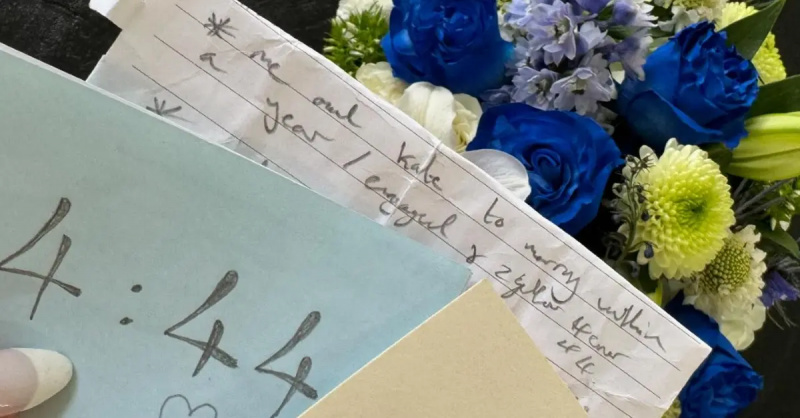 * me and Kate to marry within
a year / engaged & 2gether 4ever
44.
*
4:44